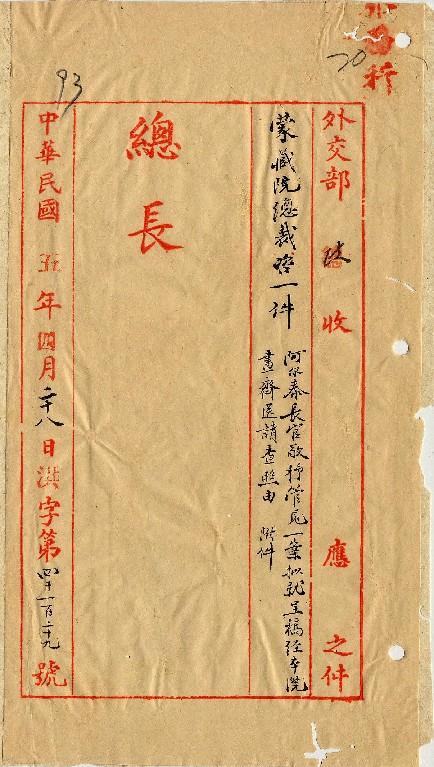 外交部 收 應 之件
蒙藏院總裁咨一件
阿尔泰長官 一案拟就呈稿經本院
畫齊送請查照由 附件
總長
中華民國五年四月二十八日洪字第 百二十九號
93
20